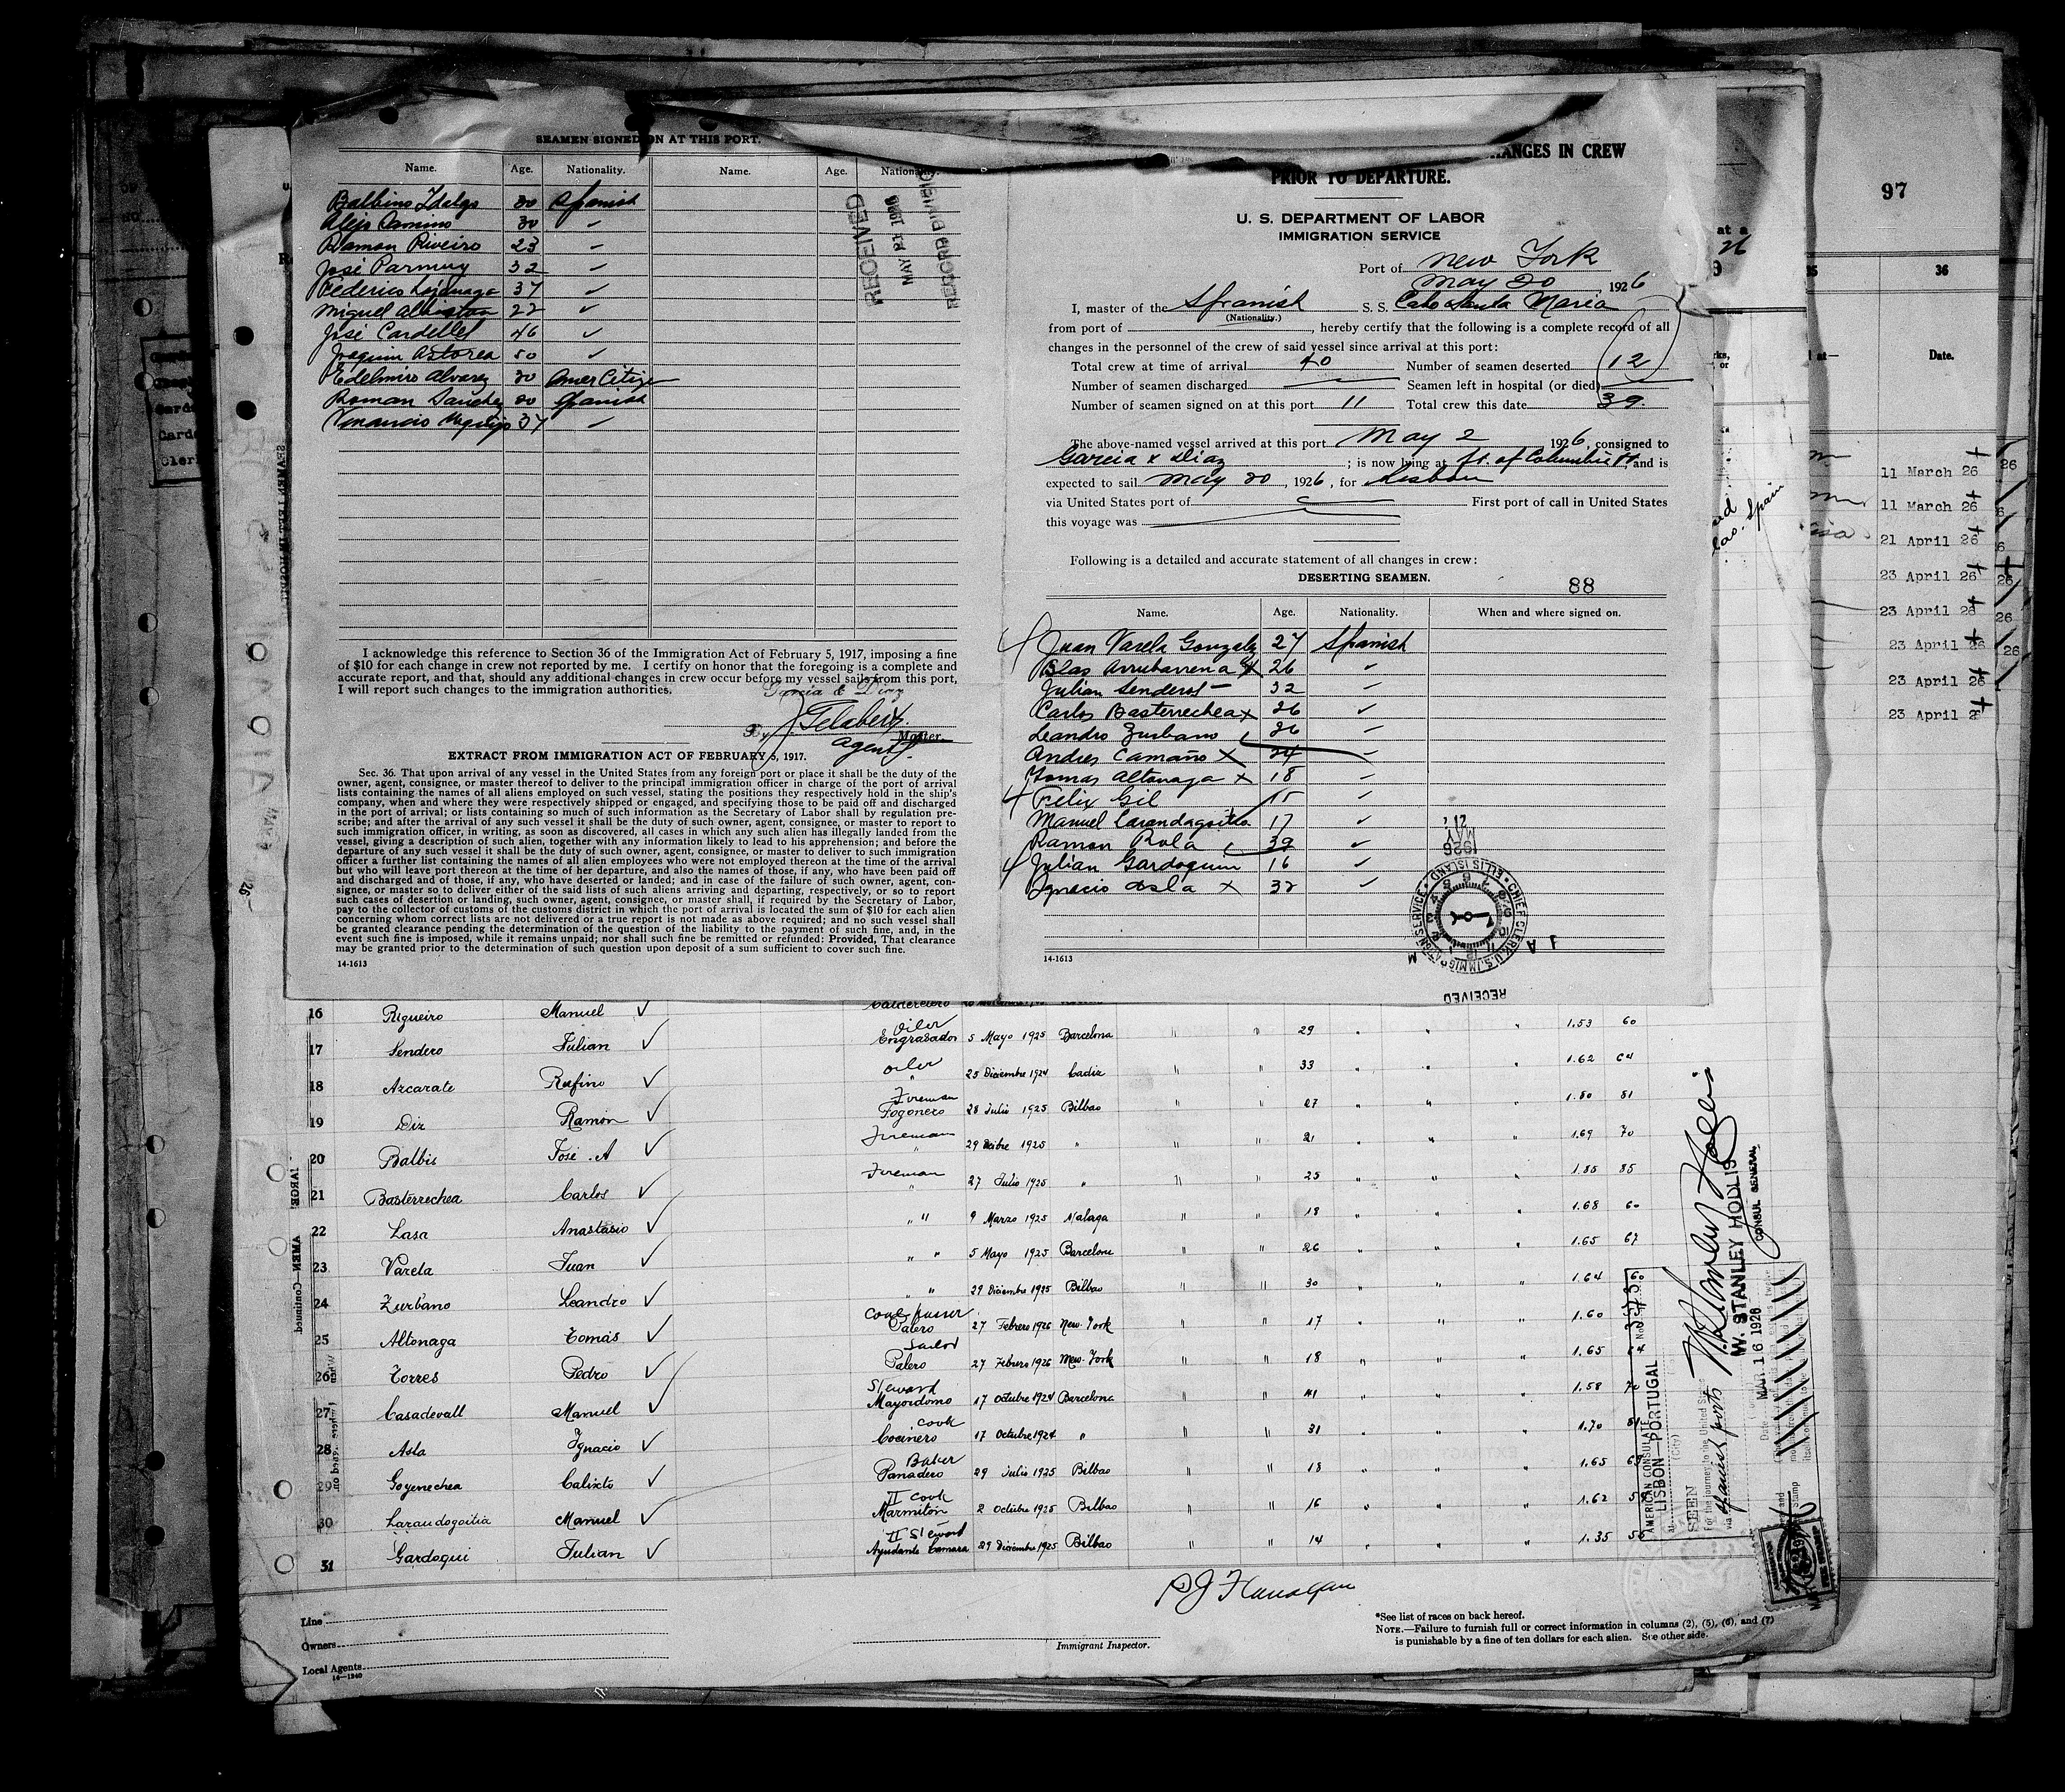 SEAMEN SIGNED ON AT THIS PORT.
Name. Age. Nationality. Name. Age. Nationality.
Balbino Idalgo 30 Spanish
Alejo Camino 30 "
Ramon Riveiro 23 "
José Parmuy 32 "
Federico 37 "
Miguel 22 "
José Cardellel 46 "
Joaquin Astorea 50 "
Edelmiro Alvarez 30 Amer Citizen
Roman Sanchez 20 Spanish
37 "
RECEIVED
MAY 21 1926
RECORD DIVISION
I acknowledge this reference to Section 36 of the Immigration Act of February 5, 1917, imposing a fine
of $10 for each change in crew not reported by me. I certify on honor that the foregoing is a complete and
accurate report, and that, should any additional changes in crew occur before my vessel sails from this port,
I will report such changes to the immigration authorities.
Garcia & Diaz
By
Agent Master.
EXTRACT FROM IMMIGRATION ACT OF FEBRUARY 5, 1917.
Sec. 36. That upon arrival of any vessel in the United States from any foreign port or place it shall be the duty of the
owner, agent, consignee, or master thereof to deliver to the principal immigration officer in charge of the port of arrival
lists containing the names of all aliens employed on such vessel, stating the positions they respectively hold in the ship's
company, when and where they were respectively shipped or engaged, and specifying those to be paid off and discharged
in the port of arrival; or lists containing so much of such information as the Secretary of Labor shall by regulation pre-
scribe; and after the arrival of any such vessel it shall be the duty of such owner, agent, consignee, or master to report to
such immigration officer, in writing, as soon as discovered, all cases in which any such alien has illegally landed from the
vessel, giving a description of such alien, together with any information likely to lead to his apprehension; and before the
departure of any such vessel it shall be the duty of such owner, agent, consignee, or master to deliver to such immigration
officer a further list containing the names of all alien employees who were not employed thereon at the time of the arrival
but who will leave port thereon at the time of her departure, and also the names of those, if any, who have been paid off
and discharged and of those, if any, who have deserted or landed; and in case of the failure of such owner, agent, con-
signee, or master so to deliver either of the said lists of such aliens arriving and departing, respectively, or so to report
such cases of desertion or landing, such owner, agent, consignee, or master shall, if required by the Secretary of Labor,
pay to the collector of customs of the customs district in which the port of arrival is located the sum of $10 for each alien
concerning whom correct lists are not delivered or a true report is not made as above required; and no such vessel shall
be granted clearance pending the determination of the question of the liability to the payment of such fine, and, in the
event such fine is imposed, while it remains unpaid; nor shall such fine be remitted or refunded: Provided, That clearance
may be granted prior to the determination of such question upon deposit of a sum sufficient to cover such fine.
14-1613
CHANGES IN CREW
PRIOR TO DEPARTURE.
U. S. DEPARTMENT OF LABOR
IMMIGRATION SERVICE
Port of New York
May 20, 1926
I, master of the Spanish S. S. Cabo Santa Maria
(Nationality.)
from port of , hereby certify that the following is a complete record of all
changes in the personnel of the crew of said vessel since arrival at this port:
Total crew at time of arrival 40 Number of seamen deserted 12
Number of seamen discharged Seamen left in hospital (or died)
Number of seamen signed on at this port 11 Total crew this date 39.
The above-named vessel arrived at this port May 2 1926, consigned to
Garcia & Diaz ; is now lying at ft. of Columbia St, and is
expected to sail May 20, 1926, for Lisbon
via United States port of First port of call in United States
this voyage was
Following is a detailed and accurate statement of all changes in crew:
DESERTING SEAMEN.
88
Name. Age. Nationality. When and where signed on.
Juan Varela Gonzalez 27 Spanish
Blas Arrubarrena x 26 "
Julian Senderos 32 "
Carlos Basterrechea x 26 "
Leandro Zurbano 26 "
Andres Camaño x 24 "
Tomas Altonaga x 18 "
Felix Gil 15 "
Manuel Larandagoitia 17 "
Ramon Rola 39 "
Julian Gardoquim 16 "
Ignacio Asla x 32 "
14-1613
RECEIVED
CHIEF CLERK, U.S. IMMIGRATION SERVICE ELLIS ISLAND
MAY 21 1926
97
35 36
Date.
11 March 26
11 March 26
21 April 26
23 April 26
23 April 26
23 April 26
23 April 26
23 April 2
16 Rigueiro Manuel
17 Sendero Julian Oiler Engrasador 5 Mayo 1925 Barcelona " " 29 " " " 1.53 60
18 Azcarate Rufino oiler " 25 Diciembre 1924 Cadiz " " 33 " " " 1.62 64
19 Diz Ramón Fireman Fogonero 28 Julio 1925 Bilbao " " 27 " " " 1.80 81
20 Balbis José A Fireman " 29 1925 " " " 21 " " " 1.69 70
21 Basterrechea Carlos Fireman " 27 Julio 1925 " " " 25 " " " 1.85 85
22 Lasa Anastasio " " 9 Marzo 1925 Malaga " " 18 " " " 1.68 60
23 Varela Juan " " 5 Mayo 1925 Barcelona " " 26 " " " 1.65 67
24 Zurbano Leandro " " 29 Diciembre 1925 Bilbao " " 30 " " " 1.64 60
25 Altonaga Tomás Coal passer Palero 27 Febrero 1926 New-York " " 17 " " " 1.60
26 Torres Pedro Sailor Palero 27 Febrero 1926 New-York " " 18 " " " 1.65 64
27 Casadevall Manuel Steward Mayordomo 17 Octubre 1924 Barcelona " " 41 " " " 1.58 70
28 Asla Ignacio cook Cocinero 17 Octubre 1924 " " " 31 " " " 1.70
29 Goyenechea Calixto Baker Panadero 29 Julio 1925 Bilbao " " 18 " " " 1.65
30 Larandogoitia Manuel II cook Marmitón 2 Octubre 1925 Bilbao " " 16 " " " 1.62
31 Gardoqui Julian II Steward Ayudante Camara 29 Diciembre 1925 Bilbao " " 14 " " " 1.35
P J Flanagan
Immigrant Inspector.
Line
Owners
Local Agents
14-1240
*See list of races on back hereof.
NOTE.—Failure to furnish full or correct information in columns (2), (5), (6), and (7)
is punishable by a fine of ten dollars for each alien. See other side.
AMERICAN CONSULATE
LISBON—PORTUGAL
(City)
SEEN
For the journey to the United States
via Spanish ports
W. STANLEY HOLLIS
CONSUL GENERAL
MAR 16 1926